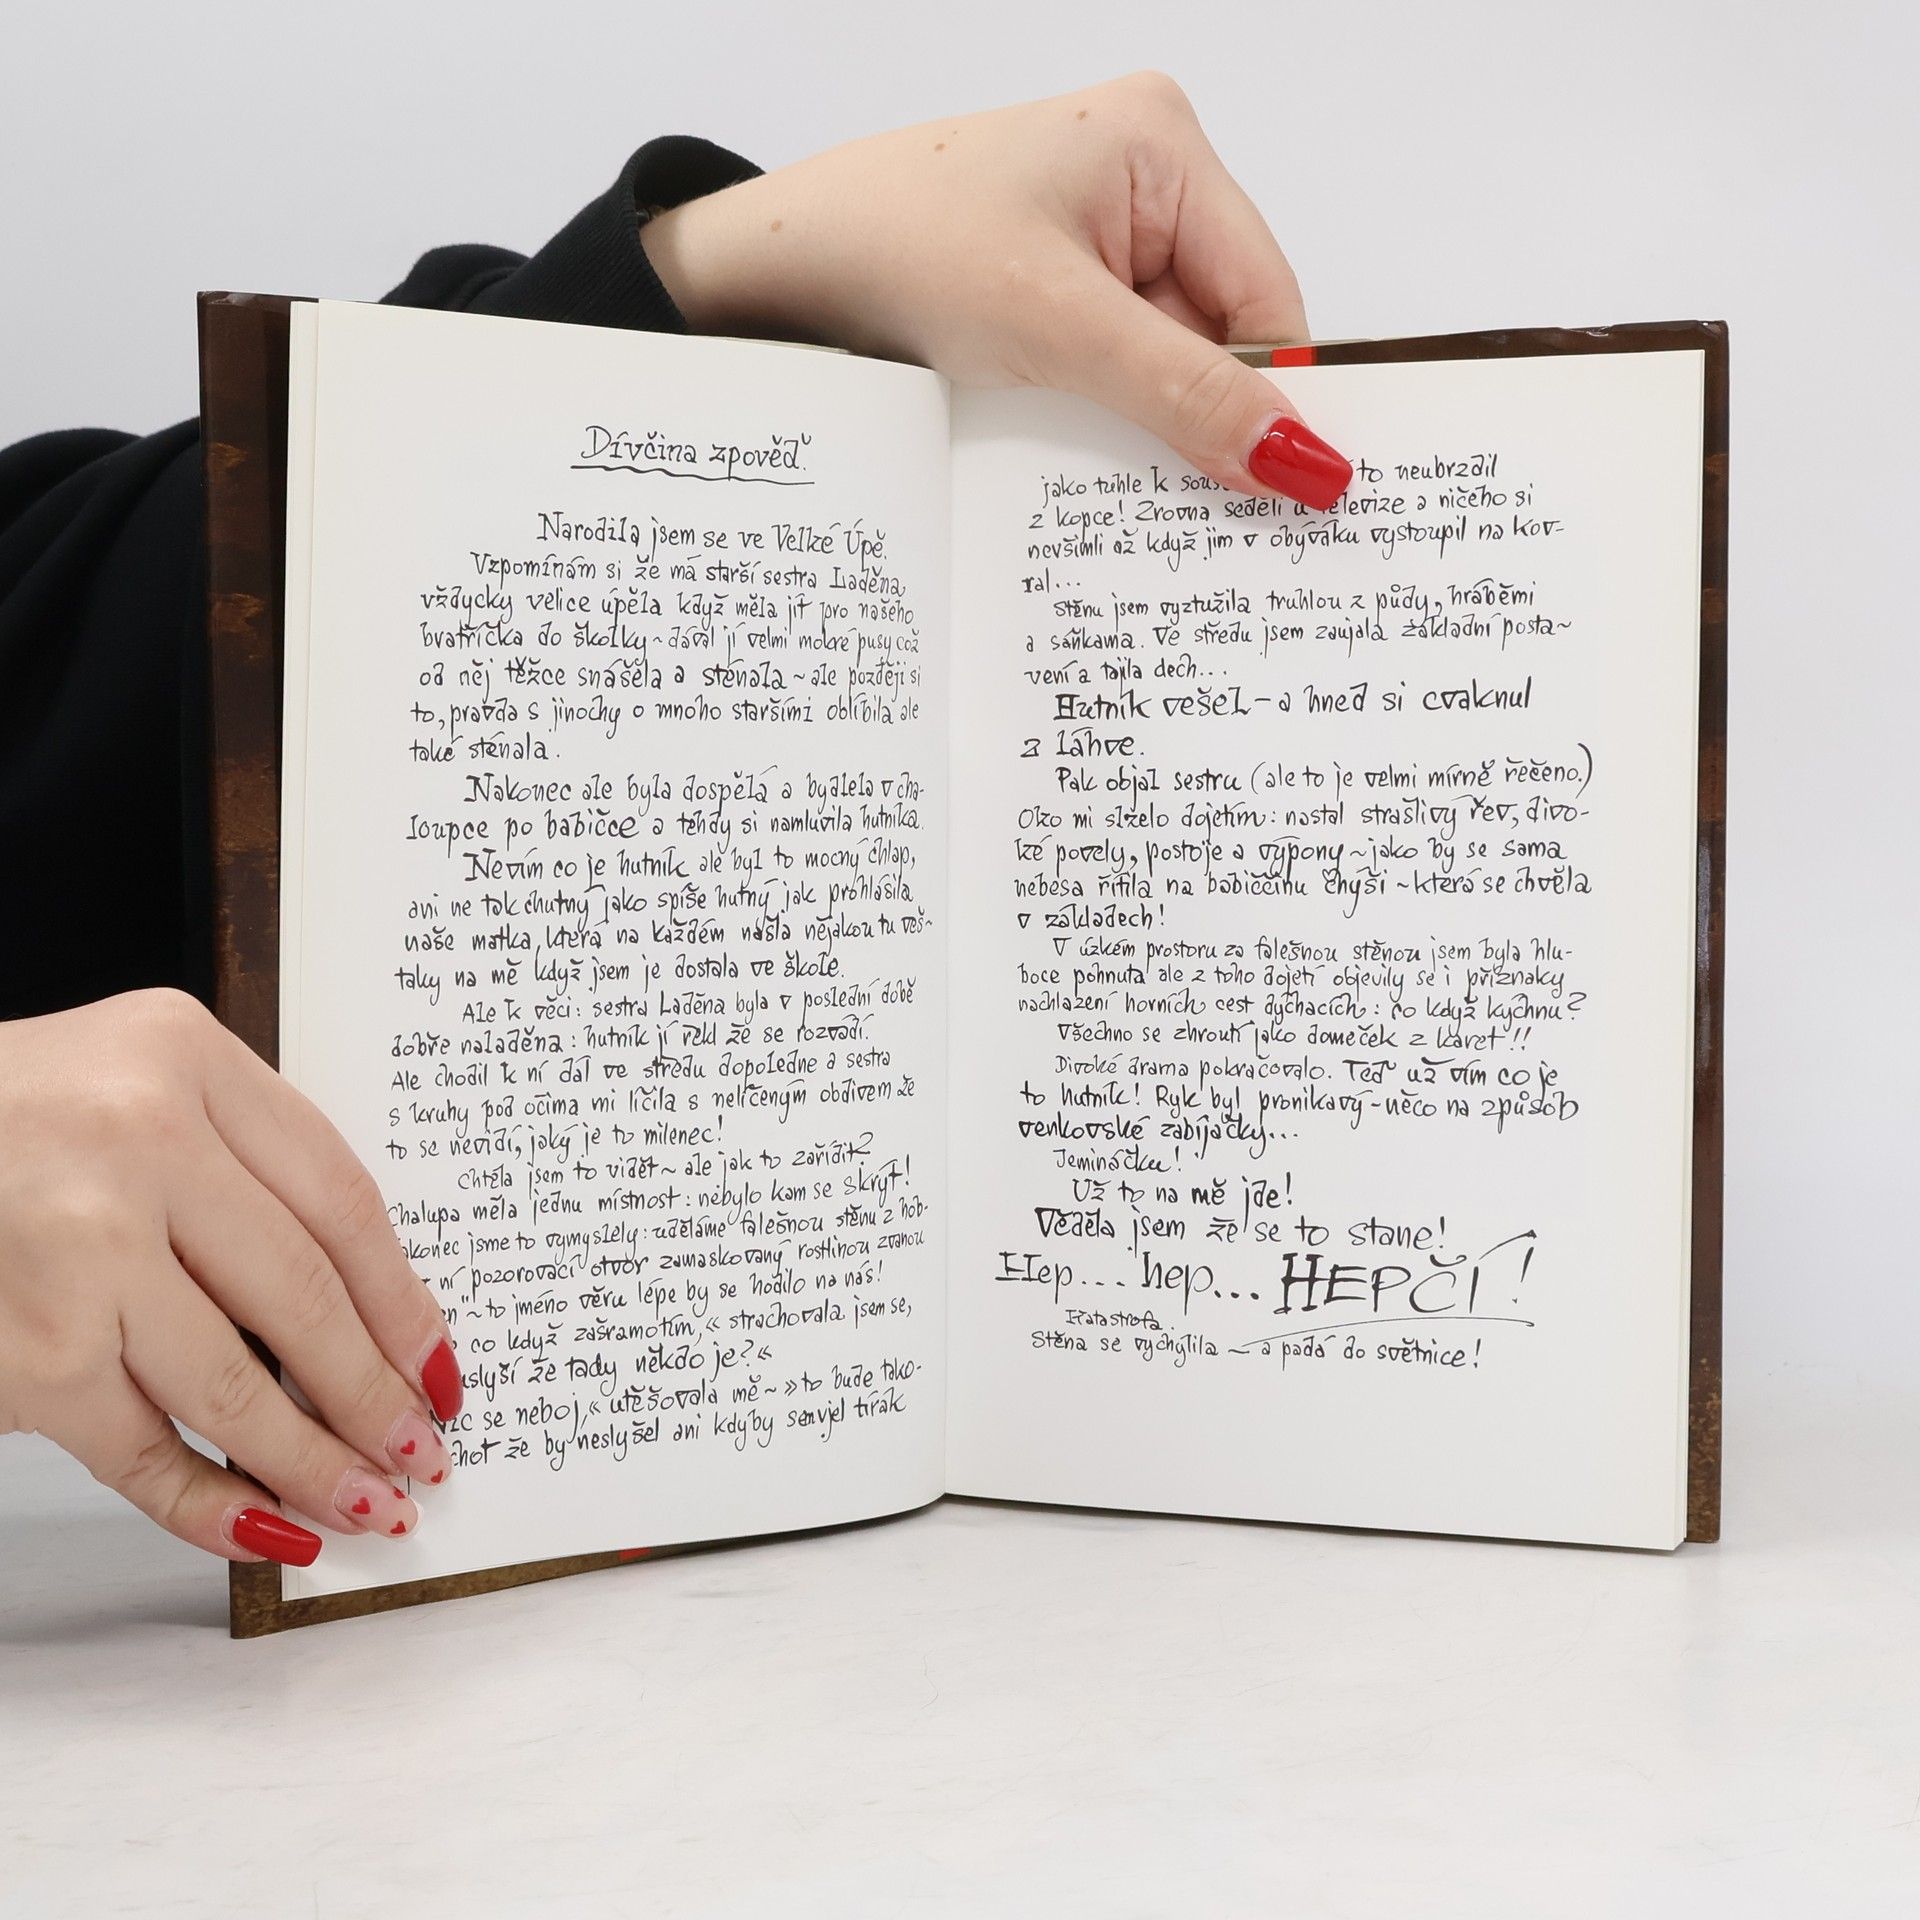 Dívčina zpověď.
Narodila jsem se ve Velké Úpě.
Vzpomínám si že má starší sestra Laděna
vždycky velice úpěla když měla jít pro našeho
bratříčka do školky ~ dával jí velmi mokré pusy což
od něj těžce snášela a sténala ~ ale později si
to, pravda s jinochy o mnoho staršími oblíbila ale
také sténala.
Nakonec ale byla dospělá a bydlela v cha-
loupce po babičce a tehdy si namluvila hutníka.
Nevím co je hutník ale byl to mocný chlap,
ani ne tak chutný jako spíše hutný jak prohlásila
naše matka, která na každém našla nějakou tu veš~
taky na mě když jsem je dostala ve škole.
Ale k věci: sestra Laděna byla v poslední době
dobře naladěna: hutník jí řekl že se rozvádí.
Ale chodil k ní dál ve středu dopoledne a sestra
s kruhy pod očima mi líčila s nelíčeným obdivem že
to se nevidí, jaký je to milenec!
Chtěla jsem to vidět ~ ale jak to zařídit?
Chalupa měla jednu místnost: nebylo kam se skrýt!
konec jsme to vymyslely: uděláme falešnou stěnu z hob-
ní pozorovací otvor zamaskovaný rostlinou zvanou
~ to jméno věru lépe by se hodilo na nás!
co když zašramotím,« strachovala jsem se,
uslyší že tady někdo je?«
Nic se neboj,« utěšovala mě ~ »to bude tako-
chot že by neslyšel ani kdyby sem vjel tirák
jako tuhle k to neubrzdil
z kopce! Zrovna seděli u televize a ničeho si
nevšimli až když jim v obýváku vystoupil na kov-
ral...
Stěnu jsem vyztužila truhlou z půdy, hráběmi
a sáňkama. Ve středu jsem zaujala základní posta~
vení a tajila dech...
Hutník vešel – a hned si cvaknul
z láhve.
Pak objal sestru (ale to je velmi mírně řečeno.)
Oko mi slzelo dojetím: nastal strašlivý řev, divo-
ké povely, postoje a výpony ~ jako by se sama
nebesa řítila na babiččinu chýši ~ která se chvěla
v základech!
V úzkém prostoru za falešnou stěnou jsem byla hlu-
boce pohnuta ale z toho dojetí objevily se i příznaky
nachlazení horních cest dýchacích: co když kýchnu?
Všechno se zhroutí jako domeček z karet!!
Divoké drama pokračovalo. Teď už vím co je
to hutník! Ryk byl pronikavý – něco na způsob
venkovské zabíjačky...
Jemináčku!
Už to na mě jde!
Věděla jsem že se to stane!
Hep... hep... HEPČÍ!
Katastrofa.
Stěna se vychýlila — a padá do světnice!